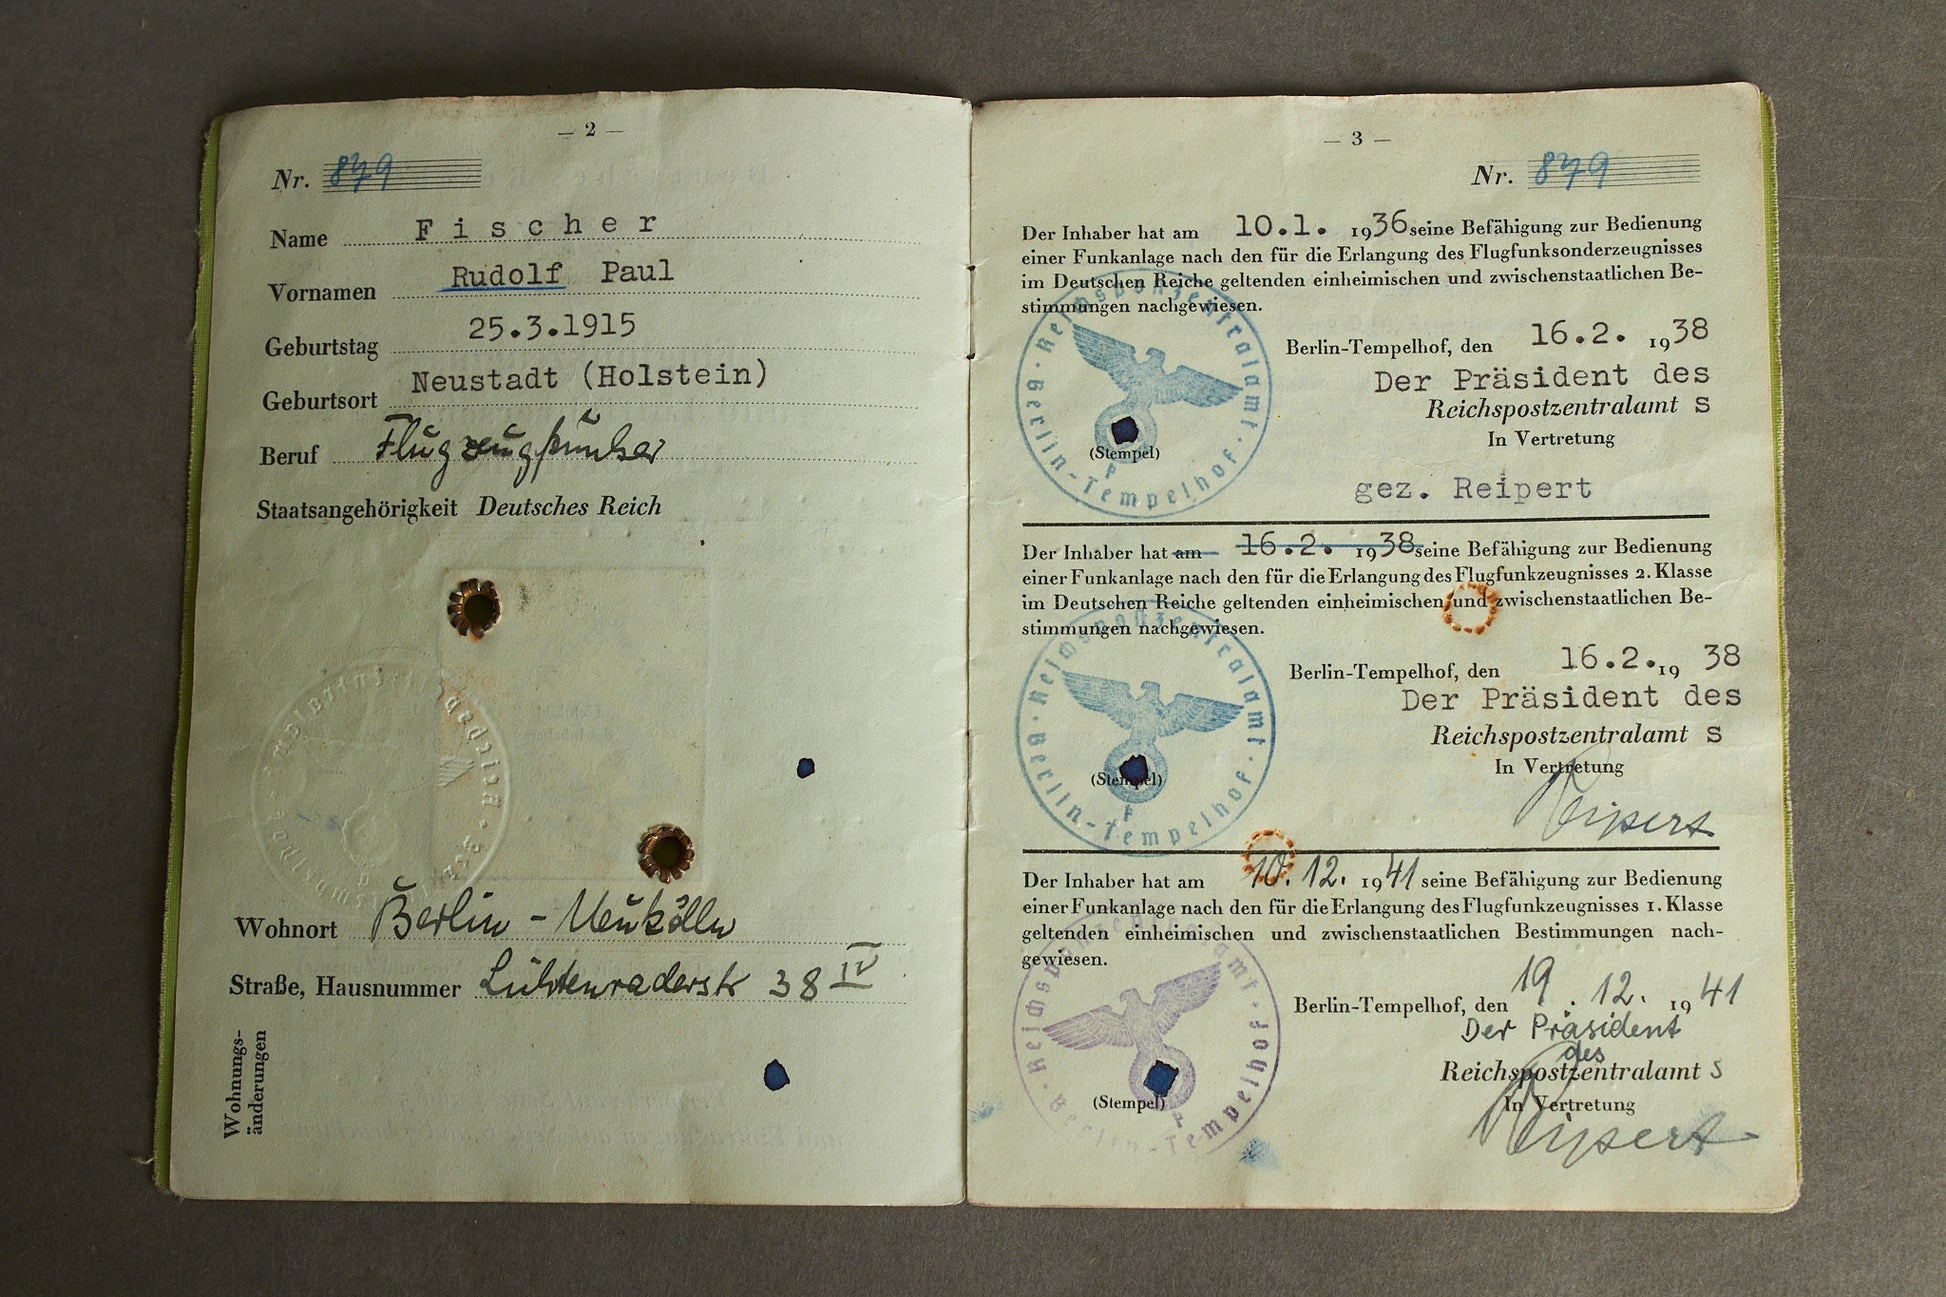 — 2 —
Nr. 879
Name Fischer
Vornamen Rudolf Paul
Geburtstag 25.3.1915
Geburtsort Neustadt (Holstein)
Beruf Flugzeugfunker
Staatsangehörigkeit Deutsches Reich
Wohnort Berlin - Neukölln
Straße, Hausnummer Lichtenraderstr 38 IV
Wohnungs-
änderungen
— 3 —
Nr. 879
Der Inhaber hat am 10.1. 1936 seine Befähigung zur Bedienung
einer Funkanlage nach den für die Erlangung des Flugfunksonderzeugnisses
im Deutschen Reiche geltenden einheimischen und zwischenstaatlichen Be-
stimmungen nachgewiesen.
Berlin-Tempelhof, den 16.2. 1938
Der Präsident des
Reichspostzentralamt s
In Vertretung
(Stempel)
gez. Reipert
Reichspostzentralamt · Berlin-Tempelhof ·
Der Inhaber hat am 16.2. 1938 seine Befähigung zur Bedienung
einer Funkanlage nach den für die Erlangung des Flugfunkzeugnisses 2. Klasse
im Deutschen Reiche geltenden einheimischen und zwischenstaatlichen Be-
stimmungen nachgewiesen.
Berlin-Tempelhof, den 16.2. 19 38
Der Präsident des
Reichspostzentralamt s
In Vertretung
(Stempel)
Reipert
Reichspostzentralamt · Berlin-Tempelhof ·
Der Inhaber hat am 10. 12. 1941 seine Befähigung zur Bedienung
einer Funkanlage nach den für die Erlangung des Flugfunkzeugnisses 1. Klasse
geltenden einheimischen und zwischenstaatlichen Bestimmungen nach-
gewiesen.
Berlin-Tempelhof, den 19. 12. 1941
Der Präsident
des
Reichspostzentralamt s
In Vertretung
(Stempel)
Reipert
Reichspostzentralamt · Berlin-Tempelhof ·